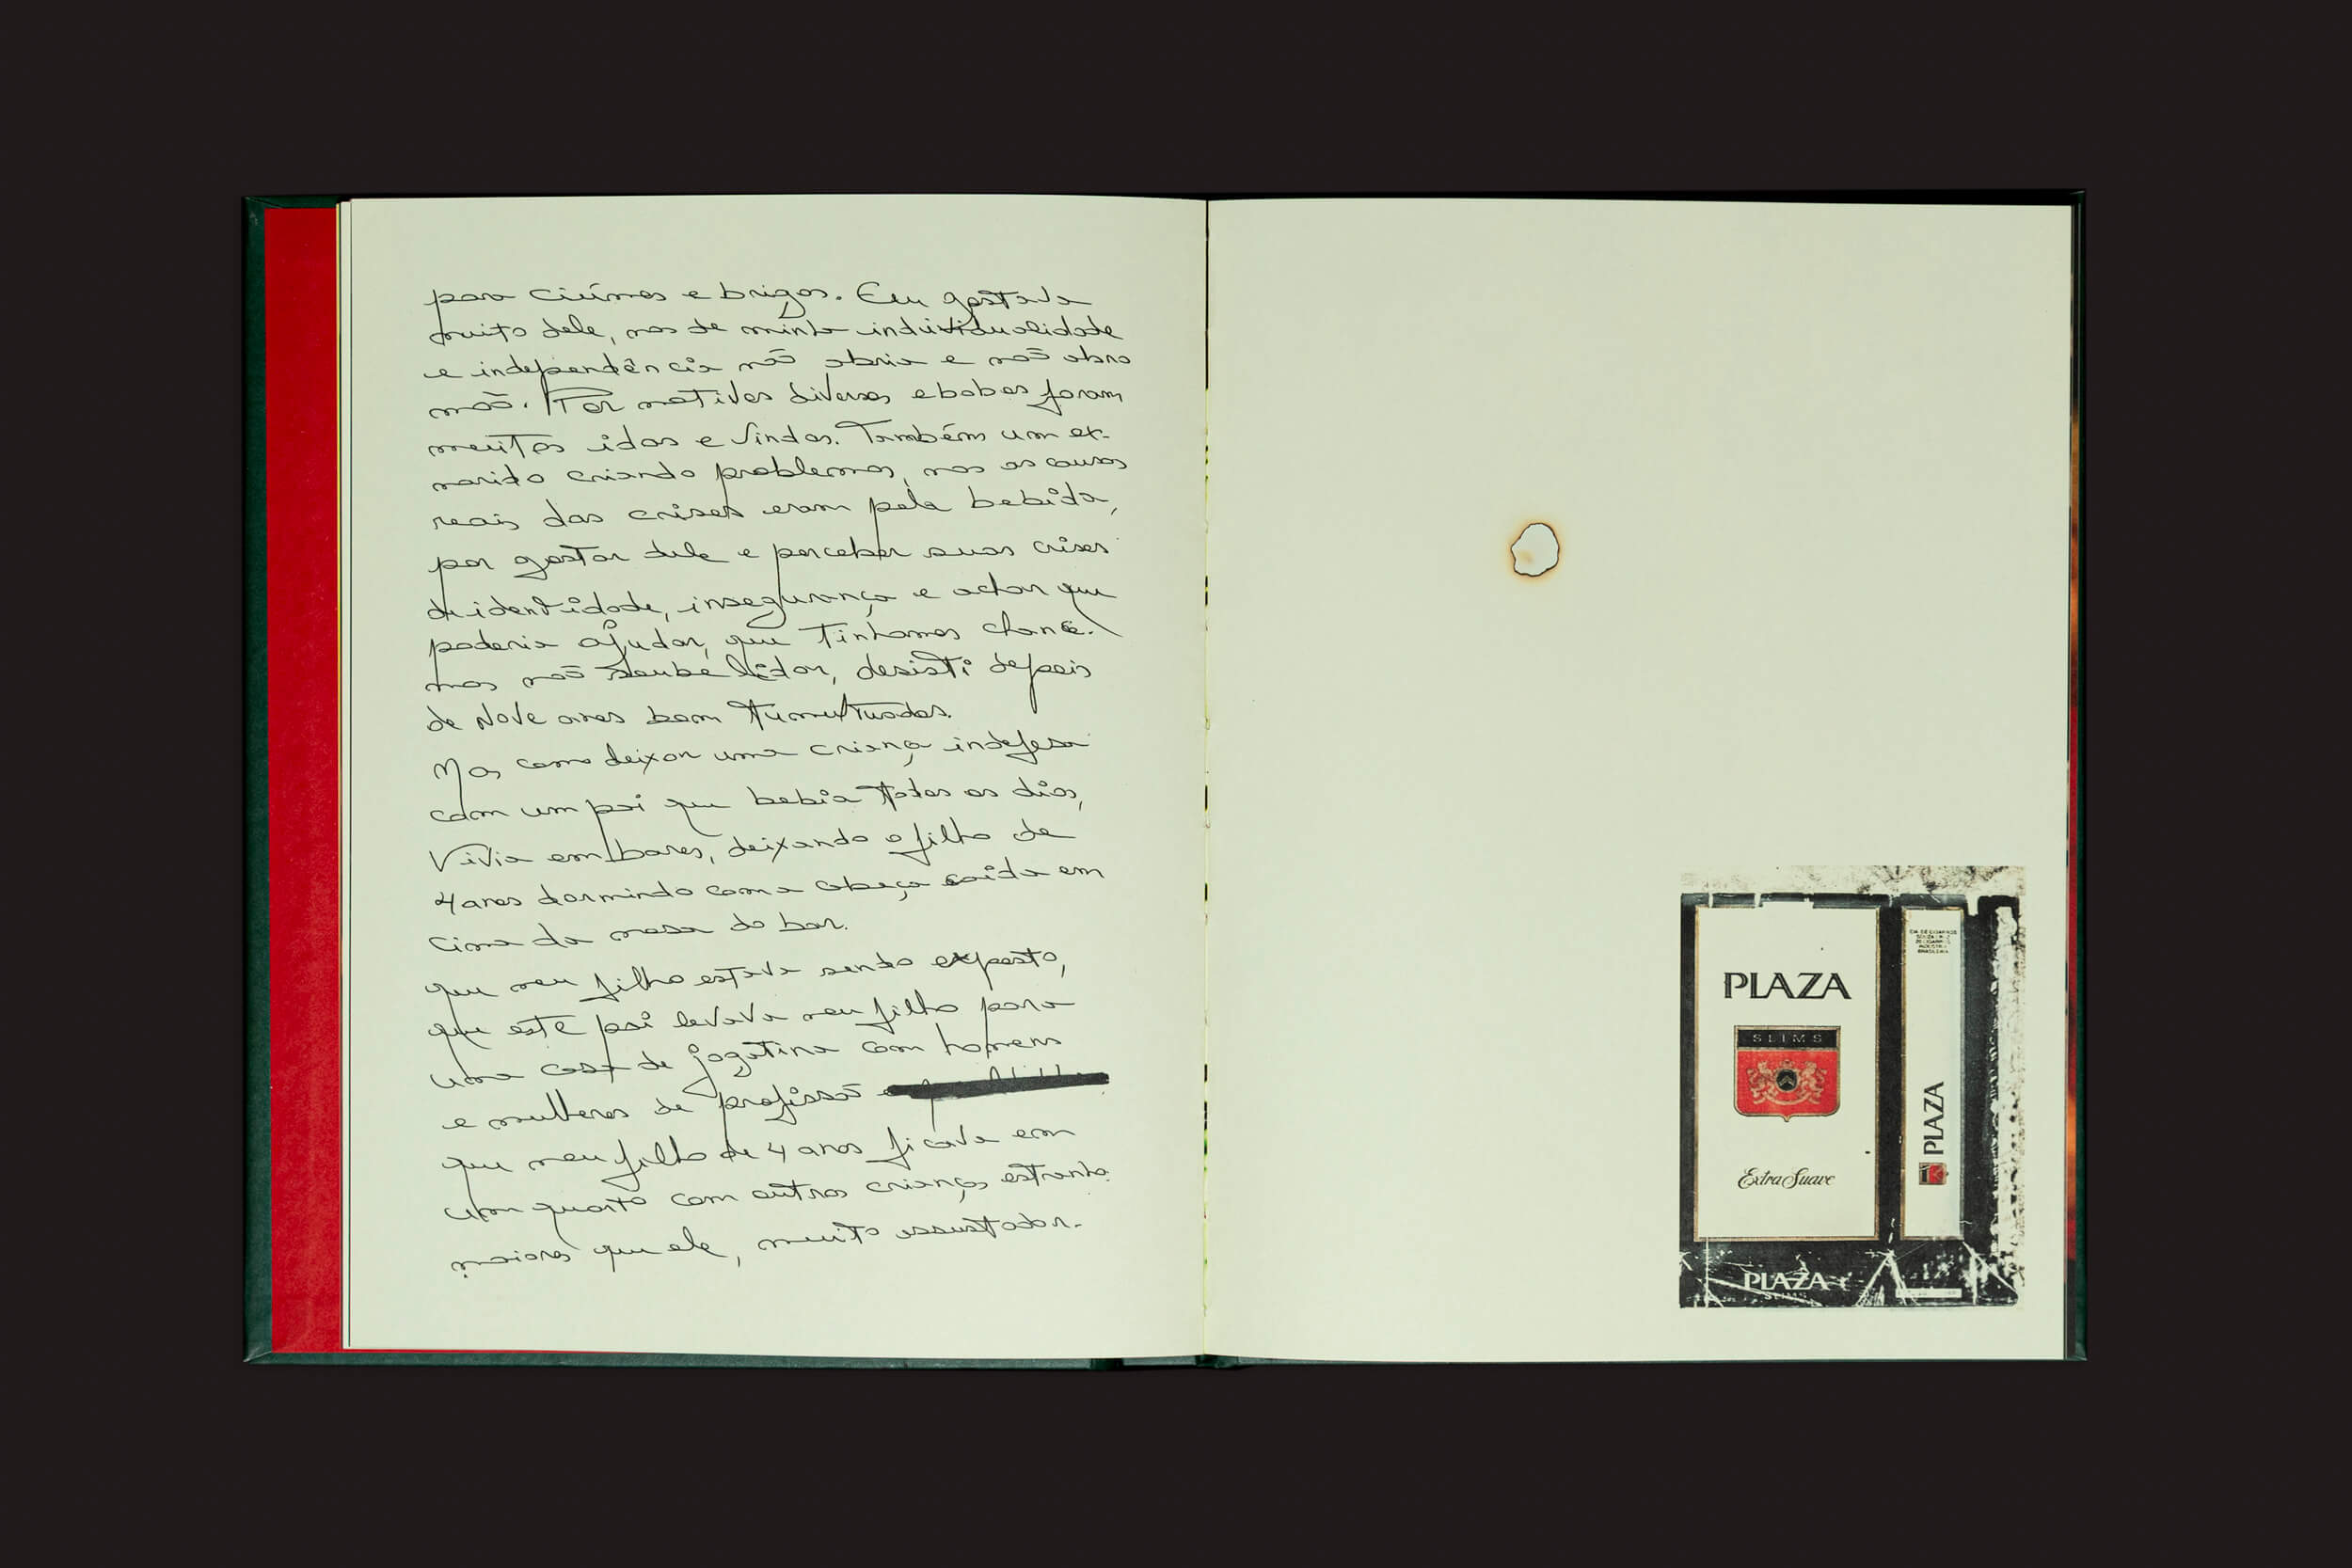 para ciúmes e brigas. Eu gostava
muito dele, mas de minha individualidade
e independência não abria e não abro
mão. Por motivos diversos e bobos foram
muitas idas e vindas. Também um ex-
marido criando problemas, mas as causas
reais das crises eram pela bebida,
por gostar dele e perceber suas crises
de identidade, insegurança e achar que
poderia ajudar, que tinhamos chance.
mas não soube lidar, desisti depois
de Nove anos bem tumultuados.
Mas como deixar uma criança indefesa
com um pai que bebia todos os dias,
Vivia em bares, deixando o filho de
4 anos dormindo com a cabeça caída em
cima da mesa do bar.
que meu filho estava sendo exposto,
que este pai levava meu filho para
uma casa de jogatina com homens
e mulheres de profissão
que meu filho de 4 anos ficava em
um quarto com outras crianças estranha
maiores que ele, muito assustador.
PLAZA
SLIMS
Extra Suave
PLAZA
SLIMS
CIA. DE CIGARROS
SOUZA CRUZ
INDÚSTRIA
BRASILEIRA
PLAZA